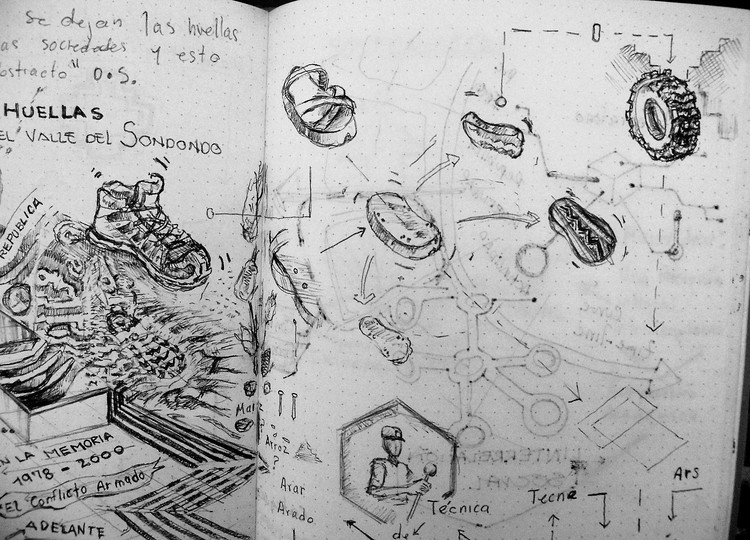 se dejan las huellas
as sociedades y esto
bstracto" D.S.
HUELLAS
EL VALLE DEL SONDONDO
REPUBLICA
Maiz
Arroz
?
Arar
Arado
N LA MEMORIA
1978 - 2000
El Conflicto Armado
ADELANTE
Técnica
de
Tecne
Ars